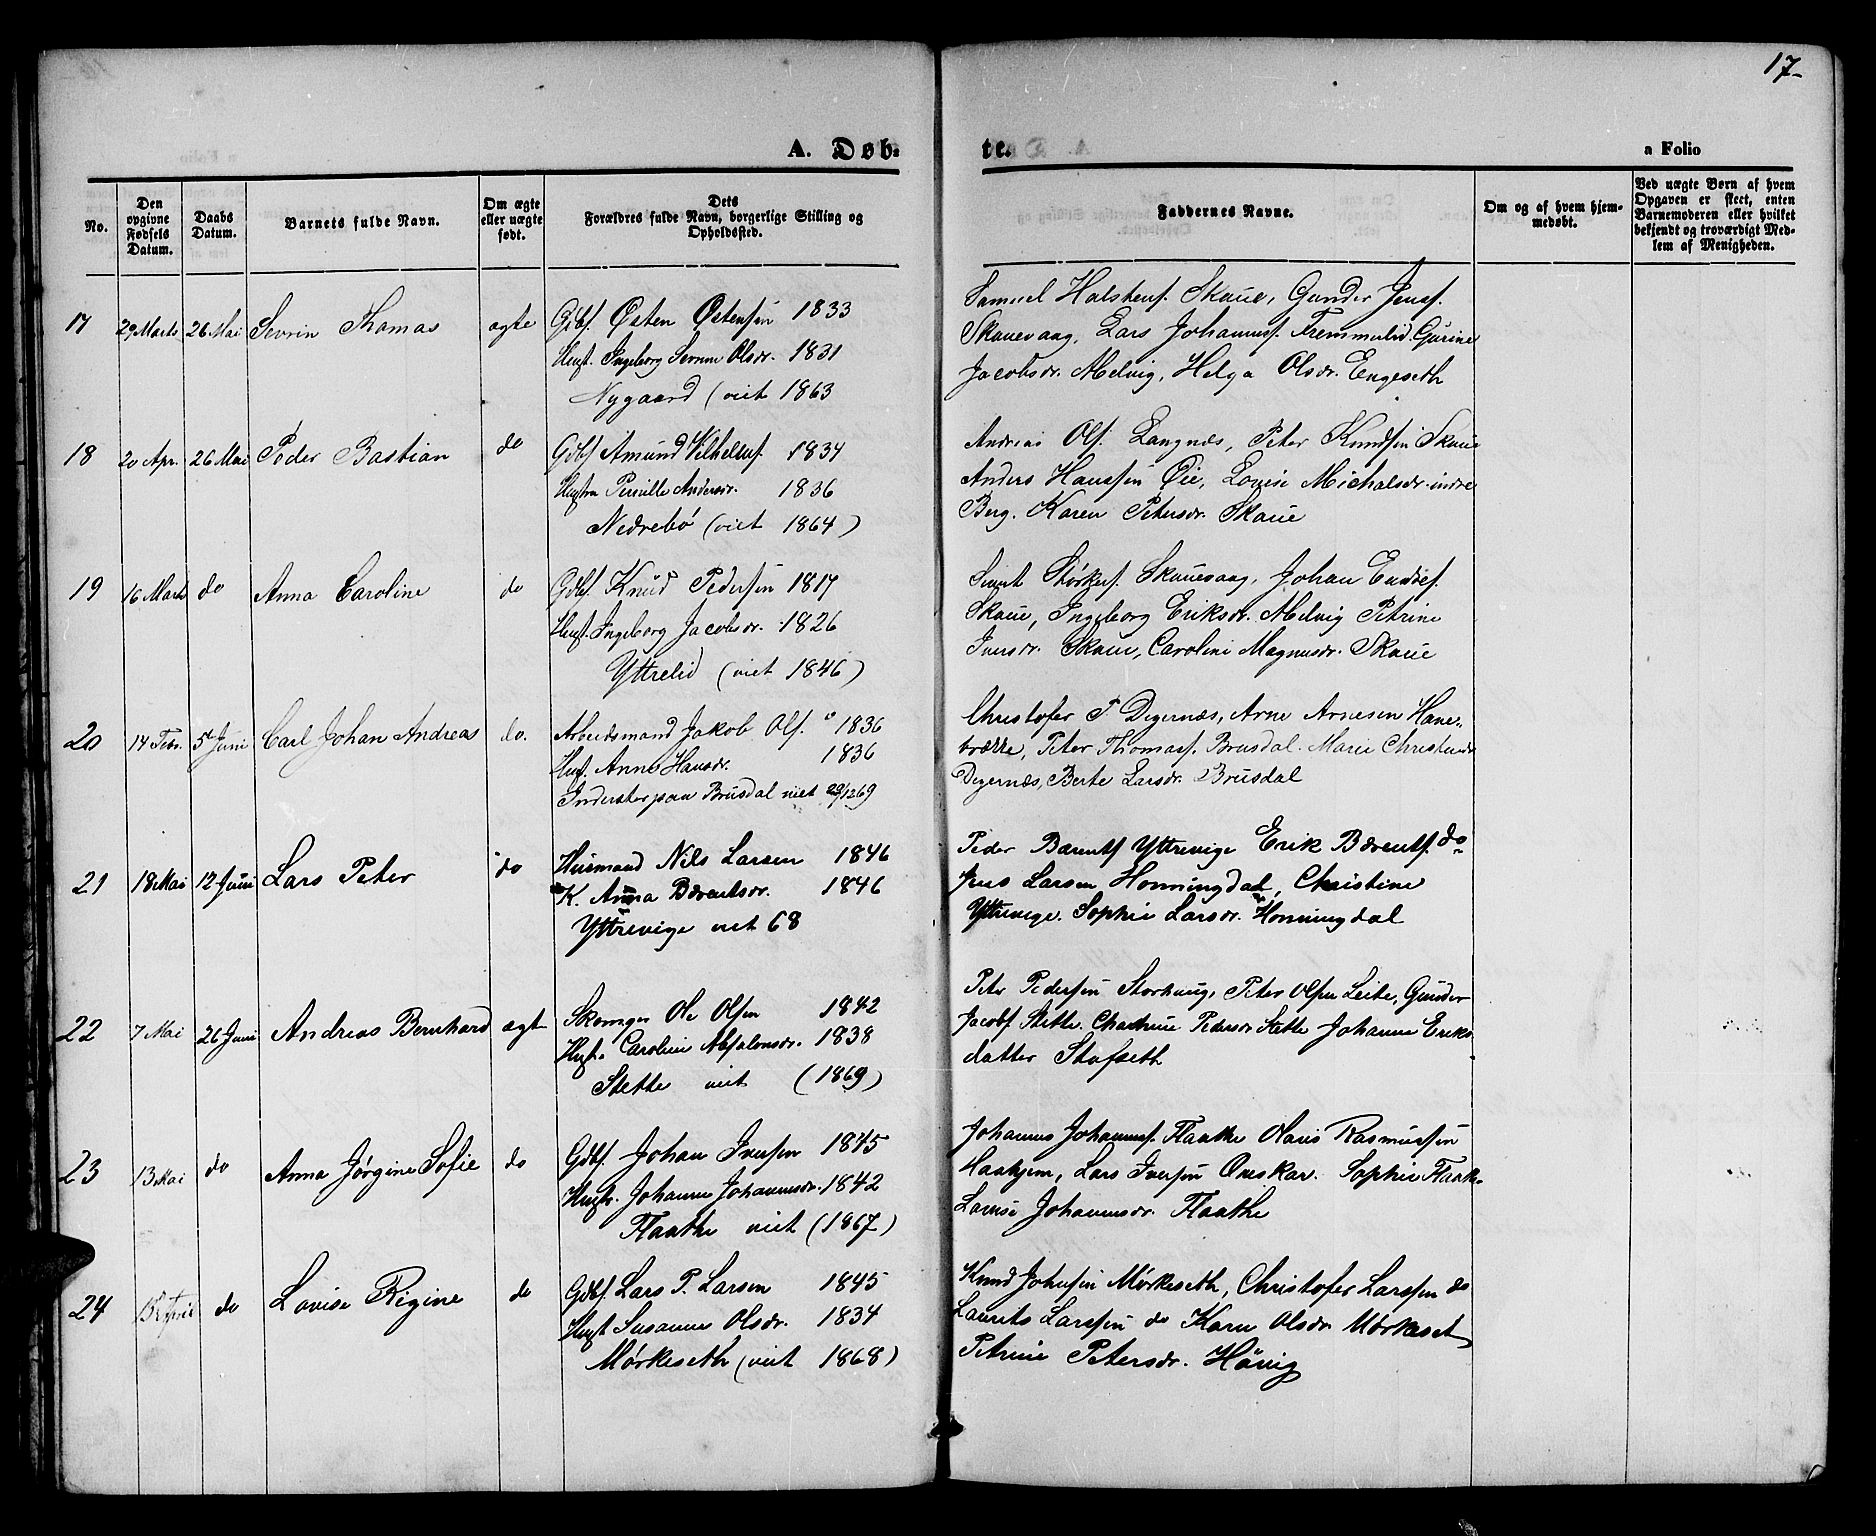 17-
A. Døb-
te.
a Folio
No.
Den opgivne Fødsels Datum.
Daabs Datum.
Barnets fulde Navn.
Om ægte eller uægte født.
Dets Forældres fulde Navn, borgerlige Stilling og Opholdssted.
Faddernes Navne.
Om og af hvem hjemmedøbt.
Ved uægte Børn af hvem Opgaven er skeet, enten Barnemoderen eller hvilket bekjendt og troværdigt Medlem af Menigheden.
17 29 Marts 26 Mai Sevrin Thomas ægte Gdbf. Østen Østensen 1833
Hust. Ingeborg Sevrine Olsdr. 1831
Nygaard (viet 1863
Samuel Halstens. Skaue, Gunder Jenss.
Skauevaag, Lars Johanness. Fremmerlid Gurine
Jacobsdr. Melvig, Helga Olsdr. Engeseth
18 20 Apr. 26 Mai Peder Bastian do Gdbf Amund Vilhelmsf. 1834
Hustru Pernille Andersdr. 1836
Nedrebø (viet 1864)
Andreas Ols. Langnæs, Peter Knudsen Skaue
Anders Hanssen Øie, Lovise Michalsdr. indre
Berg. Karen Petersdr. Skaue
19 16 Marts do Anna Caroline do Gdbf. Knud Pedersen 1817
Hust. Ingeborg Jacobsdr. 1826
Yttrelid (viet 1846)
Sivert Størkers. Skauevaag, Johan
Skaue, Ingeborg Eriksdr. Melvig Petrine
Iversdr. Skaue, Caroline Magnusdr. Skaue
20 14 Febr. 5 Juni Carl Johan Andreas do. Arbeidsmand Jakob Ols. 1836
Hust. Anne Hansdr. 1836
Inderster paa Brusdal viet 29/12 69
Christofer P. Degernæs, Arne Arnesen Hane-
brække, Peter Thomass. Brusdal. Marie Christensdr
Degernæs, Berte Larsdr. Brusdal
21 18 Mai 12 Juni Lars Peter do Husmand Nils Larsen 1846
K. Anna Bærentsdr. 1846
Yttrevige viet 68
Peder Bærents Yttrevige Erik Bærents. do
Jens Larsen Honningdal, Christine
Yttrevige. Sophie Larsdr. Honningdal
22 7 Mai 26 Juni Andreas Bernhard ægt Ole Olsen 1842
Hust. Caroline Absalonsdr. 1838
Stette viet (1869)
Peter Pedersen Storhaug, Peter Olsen Leite, Gunder
Jacobs Stette. Cathrine Pedersdr Stette Johanne Eriks
datter Stafseth
23 13 Mai do Anna Jørgine Sofie do Gdbf. Johan Iversen 1845
Hustr. Johanne Johannesdr. 1842
Flaathe viet (1867)
Johannes Johanness. Flaathe Olaus Rasmussen
Haahjem, Lars Iversen Onskar. Sophie Flaathe
Lovise Johannesdr. Flaathe
24 15 April do Lovise Regine do Gdbf. Lars P. Larsen 1845
Hust Susanne Olsdr. 1834
Mørkeseth (viet 1868)
Knud Johnsen Mørkeseth, Christofer Larssen do
Laurits Larssen do Karen Olsdr Mørkeset
Petrine Petersdr. Høvig